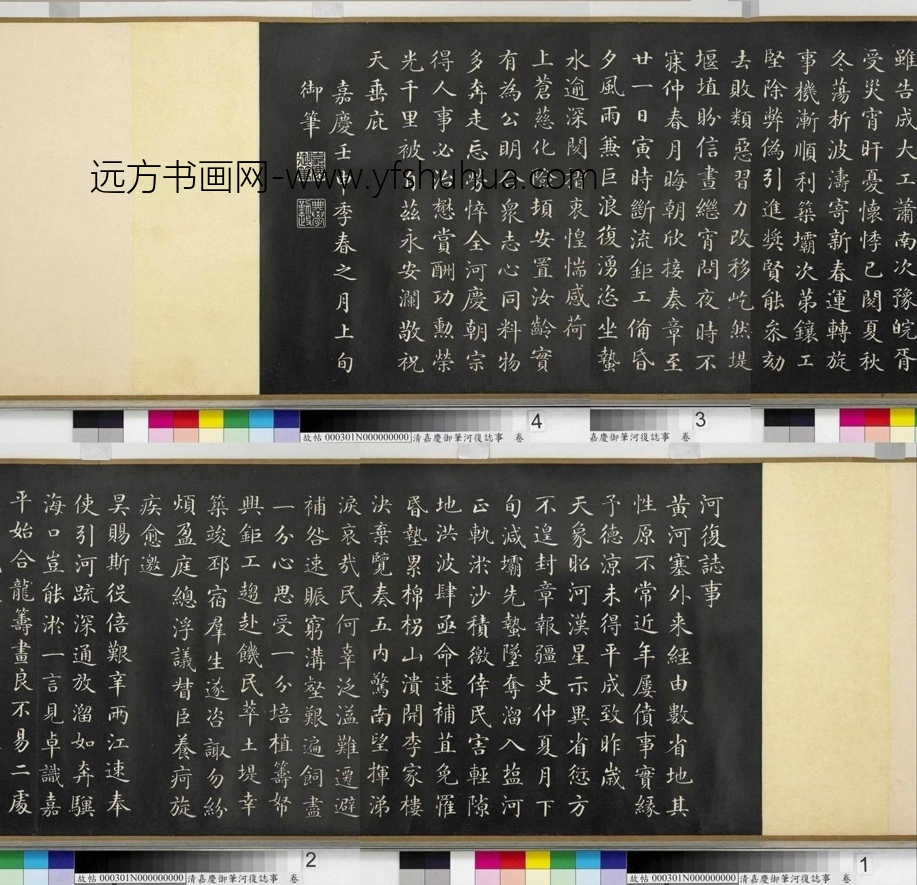 河復誌事
黃河塞外来經由數省地其
性原不常近年屢僨事實緣
予德凉未得平成致昨歲
天象昭河漢星示異省愆方
不遑封章報疆吏仲夏月下
旬減壩先蟄墜奪溜入塩河
正軌淤沙積徼倖民害輕隙
地洪波肆亟命速補苴免罹
昏墊累棉拐山潰開李家樓
決棄覽奏五内驚南望揮涕
淚哀哉民何辜泛溢難遷避
補咎速賑窮溝壑艱遍飼盡
一分心思受一分培植籌帑
興鉅工趨赴饑民萃土堤幸
築竣邳宿羣生遂咨諏勿紛
煩盈庭總浮議督臣養疴旋
疾愈邀
昊賜斯役倍艱辛兩江速奉
使引河疏深通放溜如奔驥
海口豈能淤一言見卓識嘉
平始合龍籌畫良不易二處
雖告成大工蕭南次豫皖胥
受災宵旰憂懷悸已閱夏秋
冬蕩析波濤寄新春運轉旋
事機漸順利築壩次第鑲工
堅除弊偽引進獎賢能叅劾
去敗類惡習力改移屹然堤
堰植盼信晝繼宵問夜時不
寐仲春月晦朝欣接奏章至
廿一日寅時斷流鉅工俻昏
夕風雨兼巨浪復湧恣坐蟄
水逾深閱衷惶惴感荷
上蒼慈化險頃安置汝齡實
有為公明衆志心同料物
多奔走忘悴全河慶朝宗
得人事必治懋賞酬功勲榮
光千里被自茲永安瀾敬祝
天垂庇
嘉慶壬申季春之月上旬
御筆
远方书画网-www.yfshuhua.com
4
故帖 000301N000000000 清嘉慶御筆河復誌事 卷
3
清嘉慶御筆河復誌事 卷
2
故帖 000301N000000000 清嘉慶御筆河復誌事 卷
1
故帖 000301N000000000 清嘉慶御筆河復誌事 卷